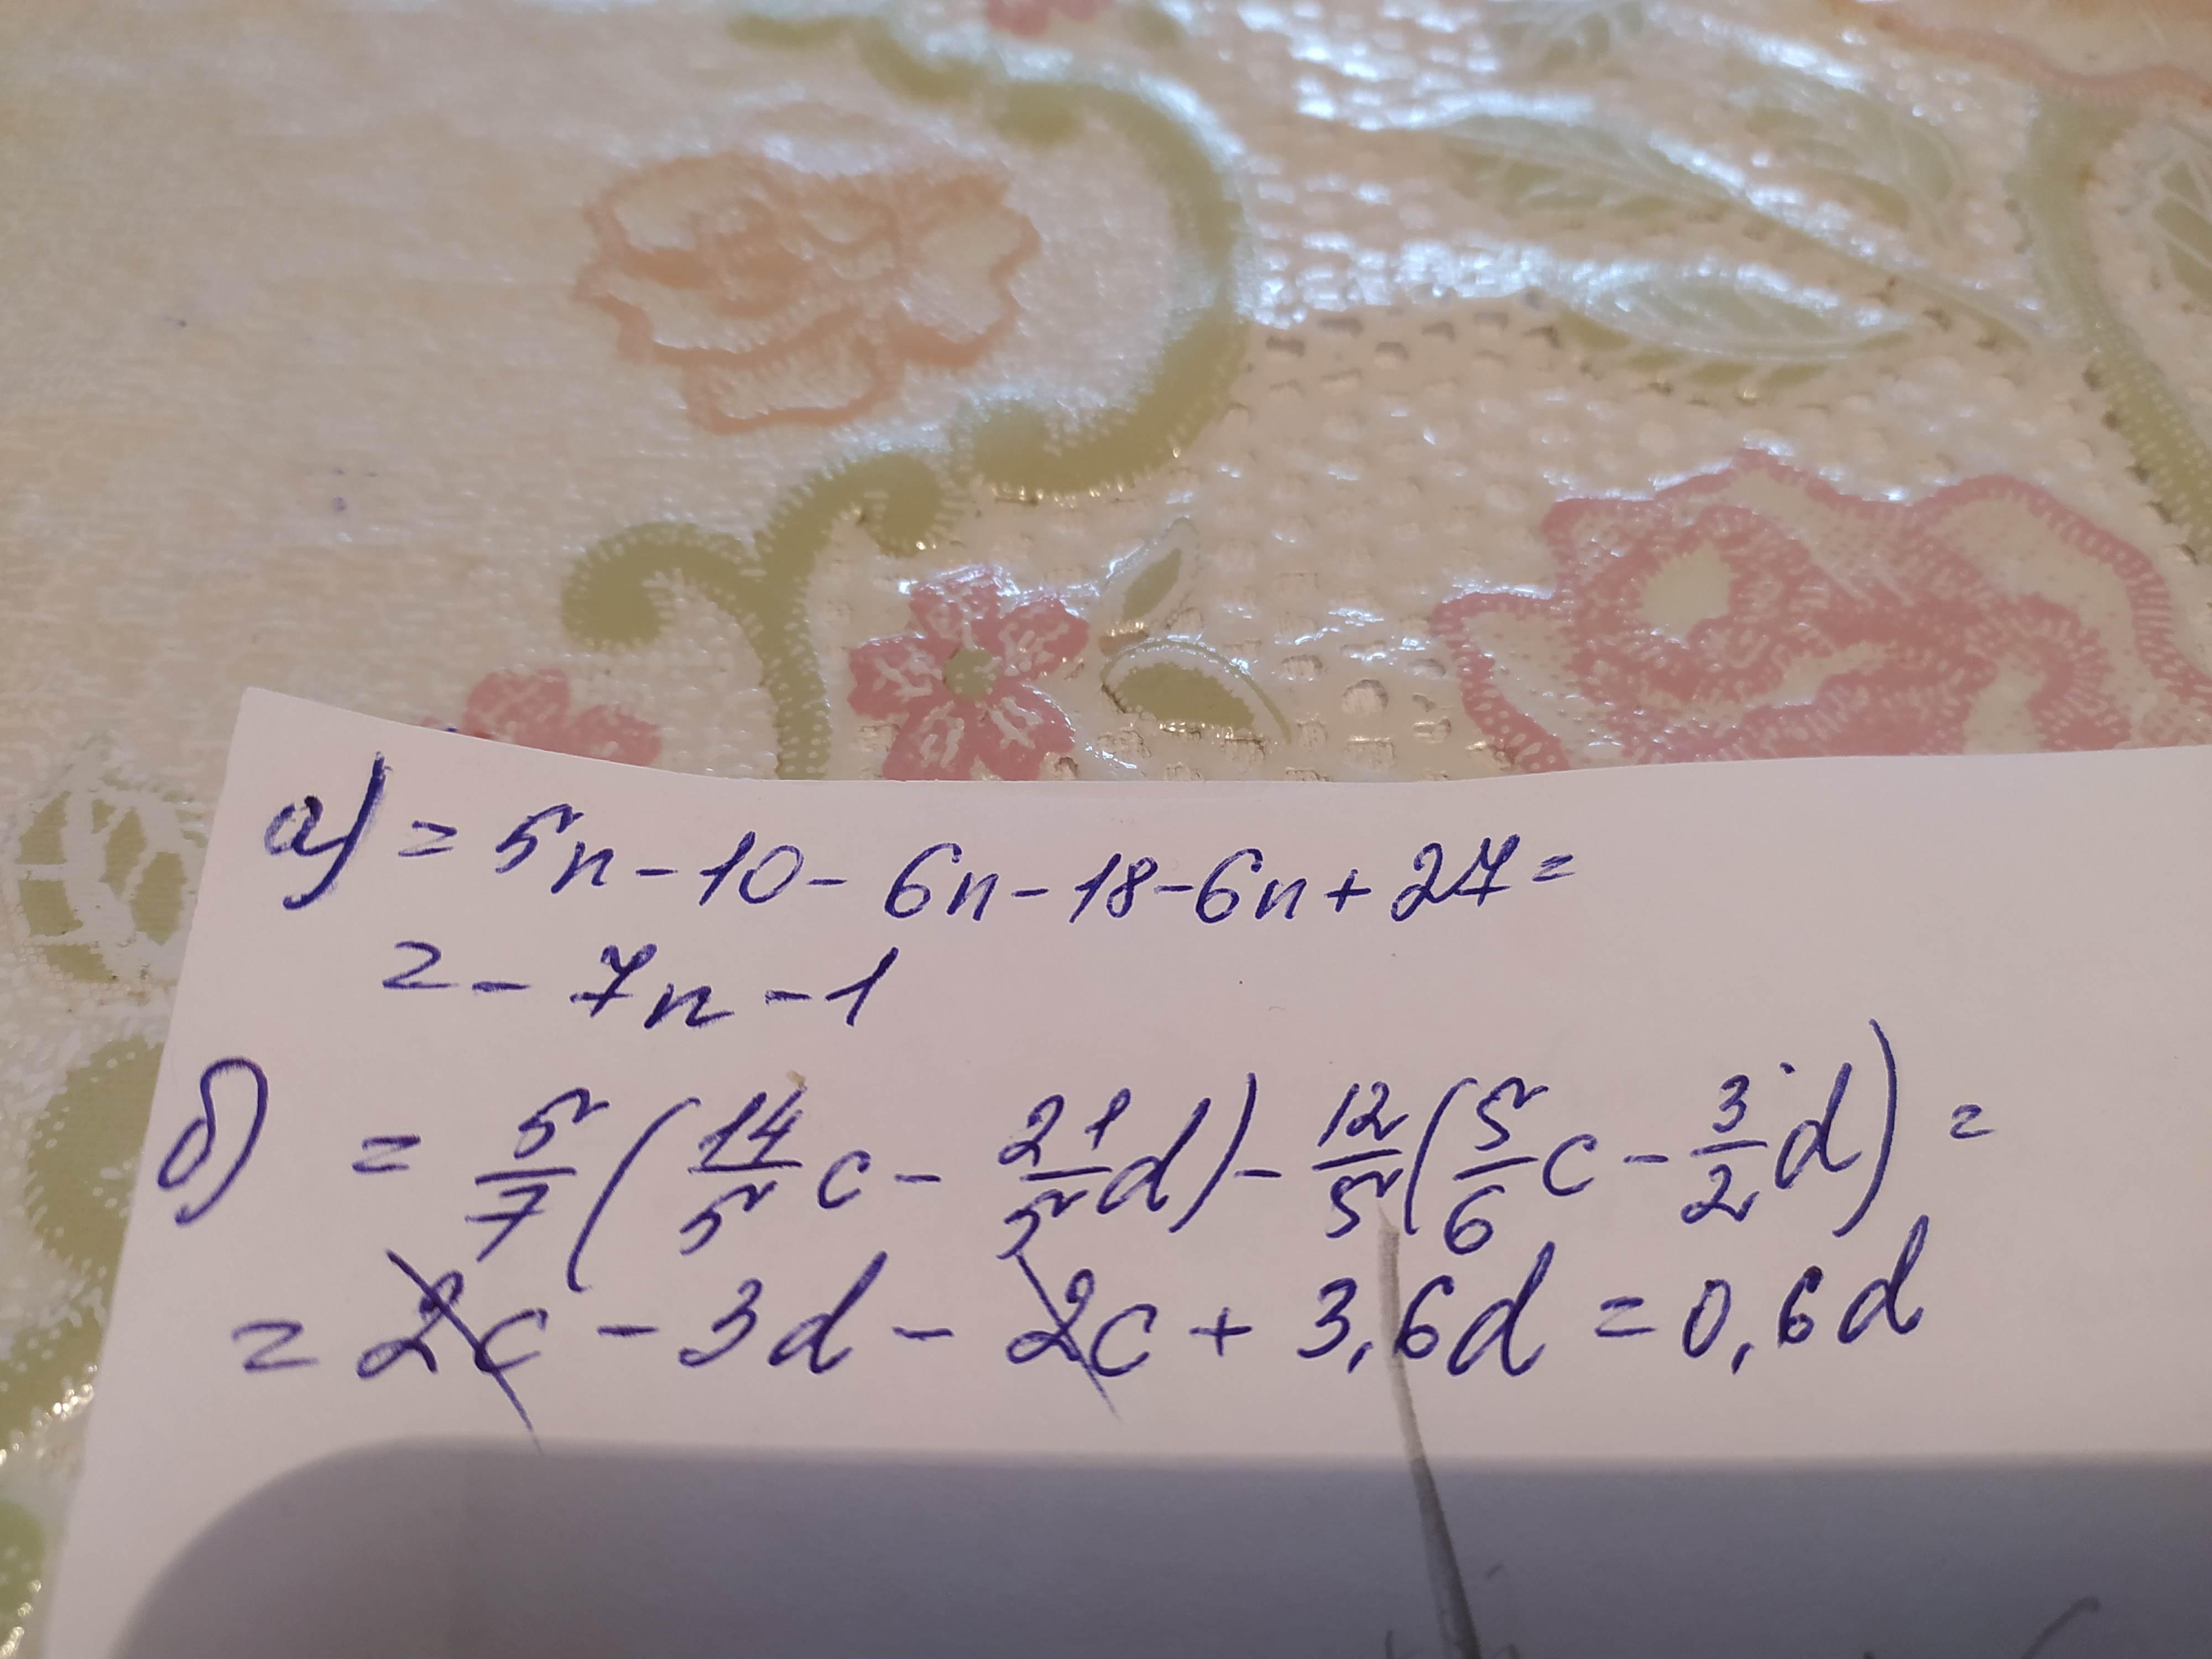 а) = 5n - 10 - 6n - 18 - 6n + 27 =
= - 7n - 1
б) = 5/7 (14/5 c - 21/5 d) - 12/5 (5/6 c - 3/2 d) =
= 2c - 3d - 2c + 3,6d = 0,6d